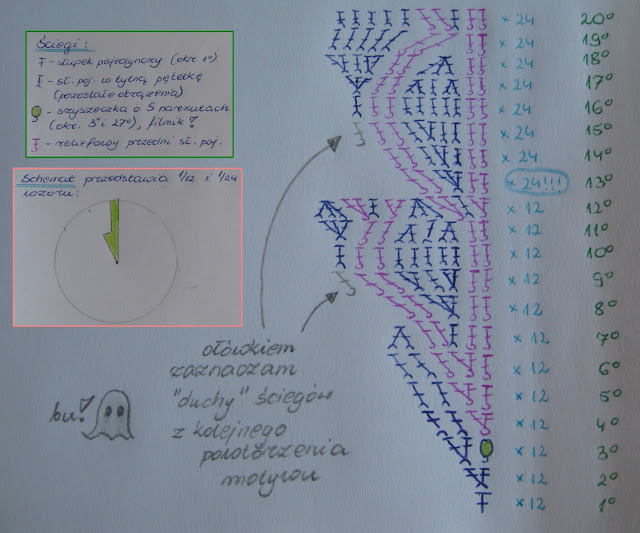 Ściegi:
- słupek pojedynczy (okr. 1º)
- sł. poj. w tylną pętelkę
(pozostałe okrążenia)
- szyszeczka o 5 narzutach
(okr. 3º i 27º), filmik?
- reliefowy przedni sł. poj.
Schemat przedstawia 1/12 i 1/24
wzoru:
ołówkiem
zaznaczam
"duchy" ściegów
z kolejnego
powtórzenia
motywu
bu!
× 24 20º
× 24 19º
× 24 18º
× 24 17º
× 24 16º
× 24 15º
× 24 14º
× 24!!! 13º
× 12 12º
× 12 11º
× 12 10º
× 12 9º
× 12 8º
× 12 7º
× 12 6º
× 12 5º
× 12 4º
× 12 3º
× 12 2º
× 12 1º